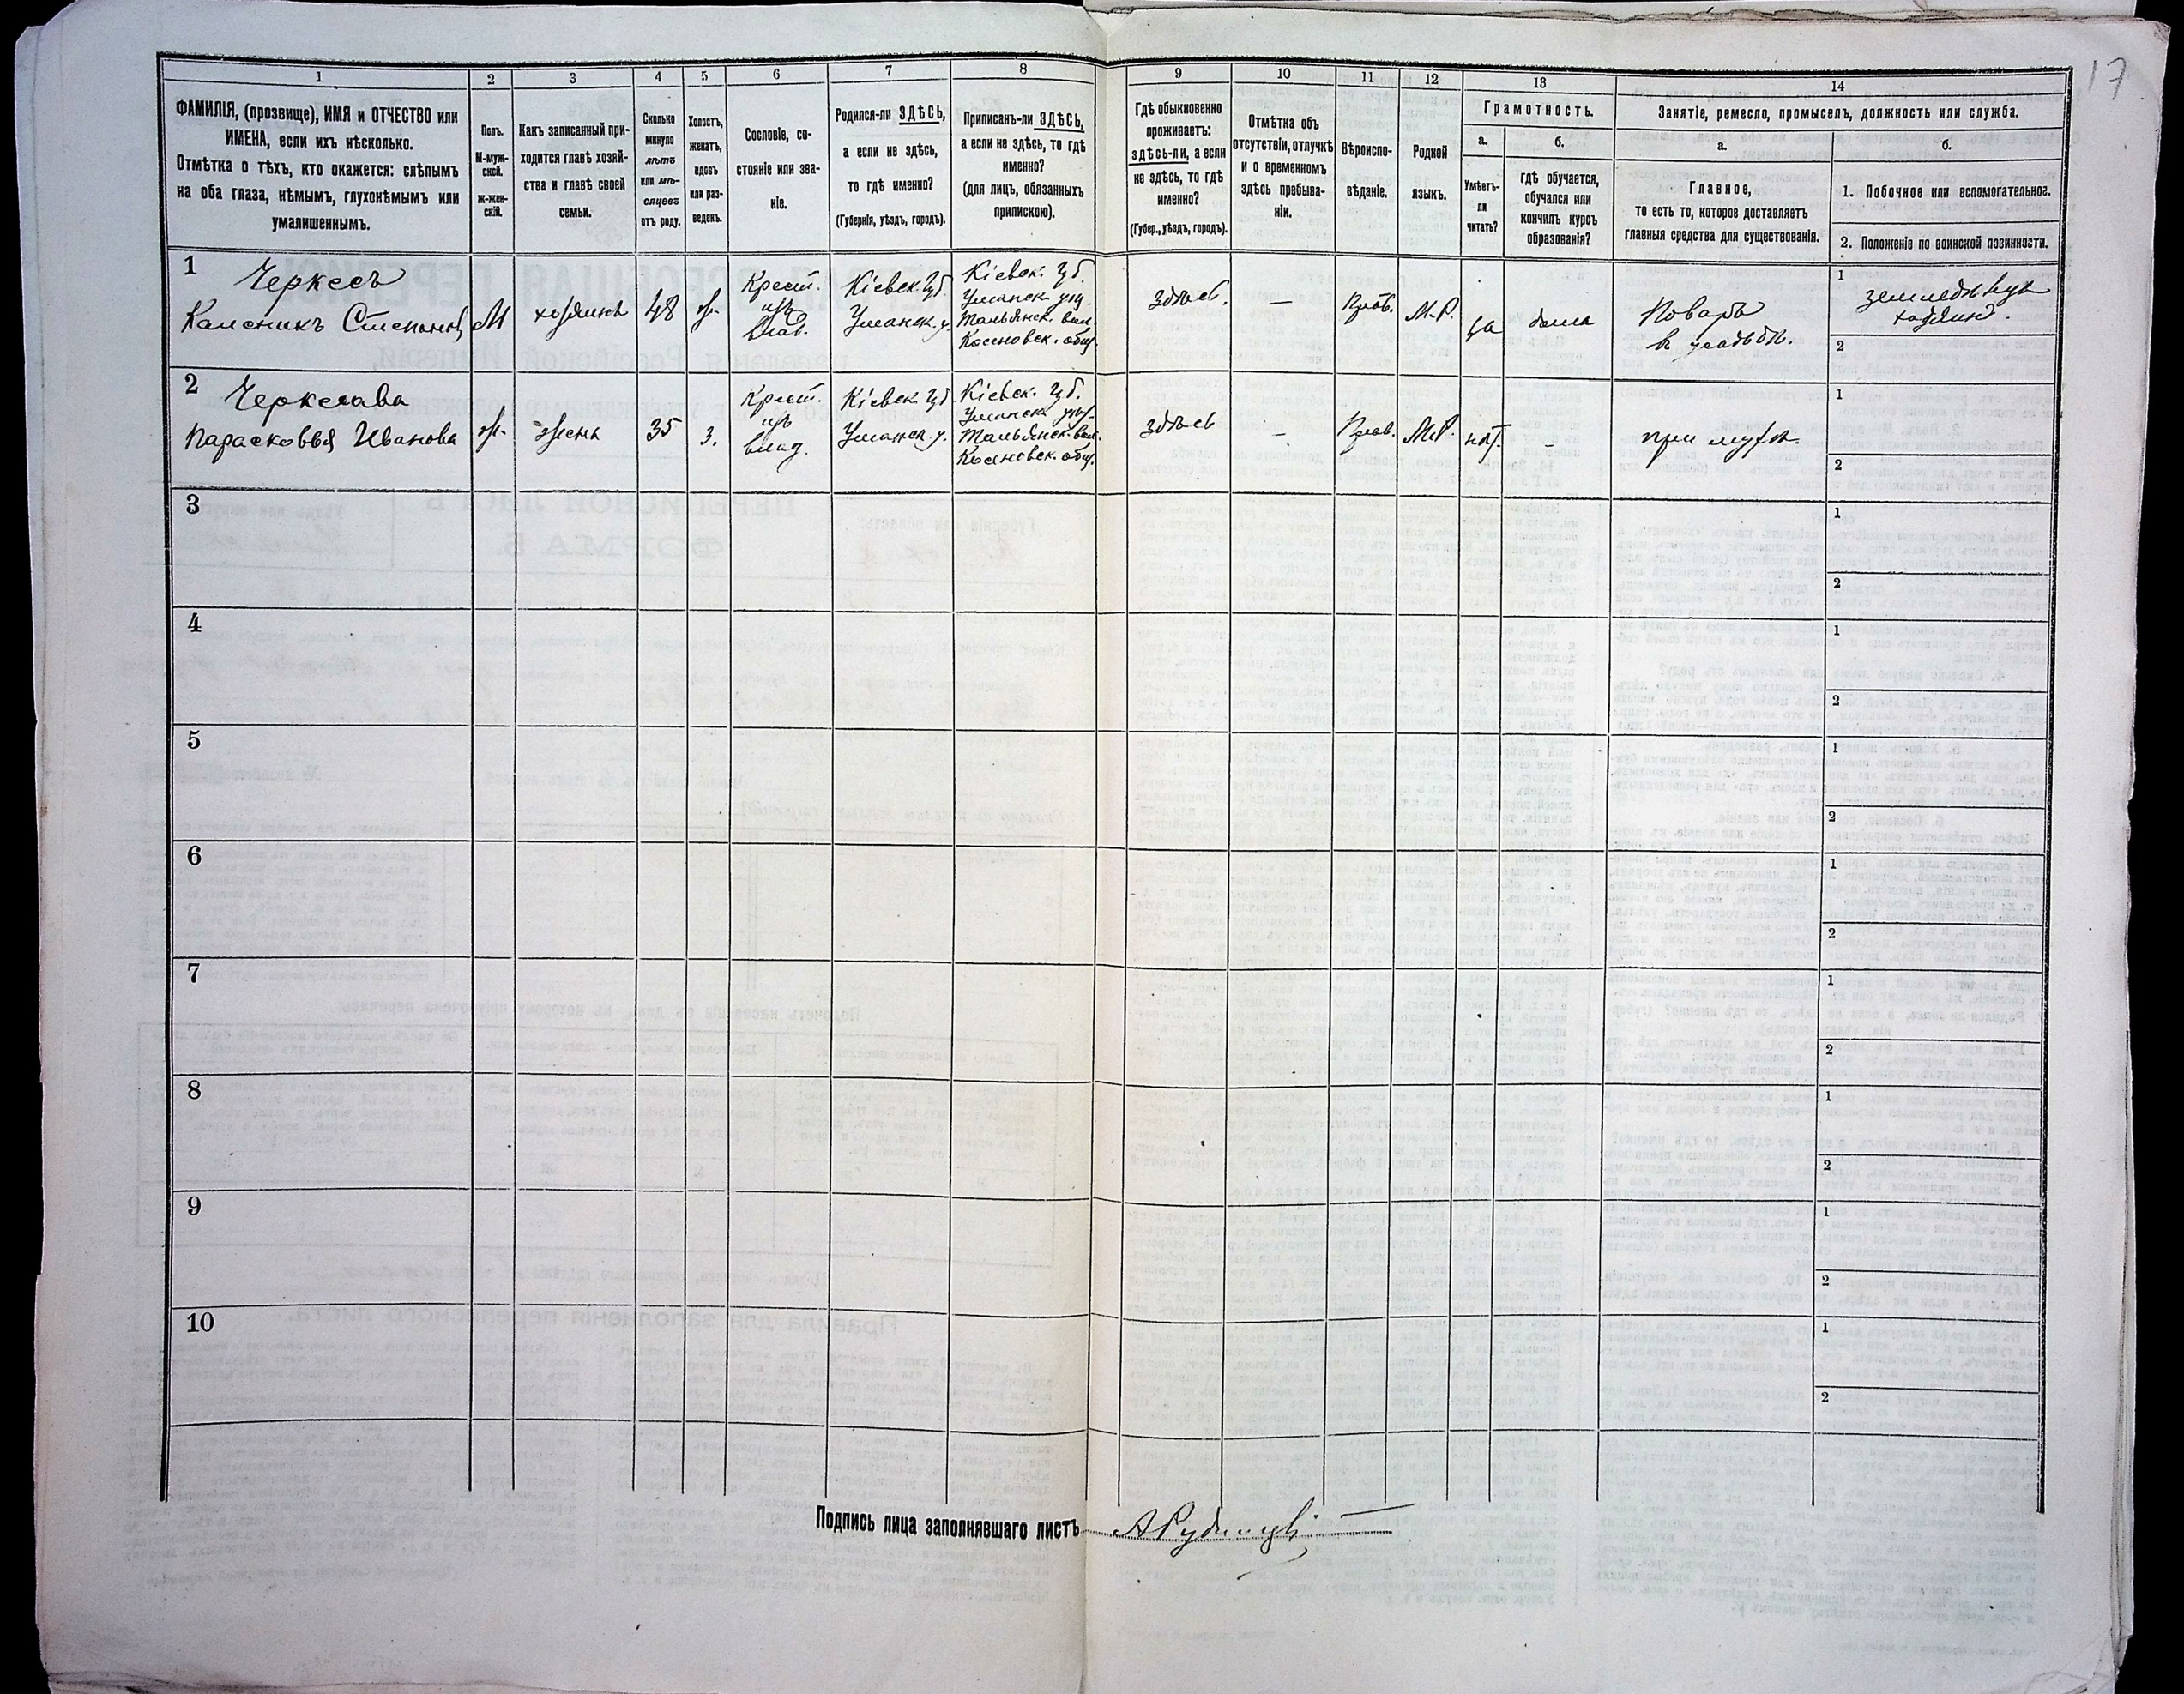 17
1
2
3
4
5
6
7
8
9
10
11
12
13
14
ФАМИЛІЯ, (прозвище), ИМЯ и ОТЧЕСТВО или
ИМЕНА, если ихъ нѣсколько.
Отмѣтка о тѣхъ, кто окажется: слѣпымъ
на оба глаза, нѣмымъ, глухонѣмымъ или
умалишеннымъ.
Полъ.
М-муж-
ской.
Ж-жен-
скій.
Какъ записанный при-
ходится главѣ хозяй-
ства и главѣ своей
семьи.
Сколько
минуло
лѣтъ
или мѣ-
сяцевъ
отъ роду.
Холостъ,
женатъ,
вдовъ
или раз-
веденъ.
Сословіе, со-
стояніе или зва-
ніе.
Родился-ли ЗДѢСЬ,
а если не здѣсь,
то гдѣ именно?
(Губернія, уѣздъ, городъ).
Приписанъ-ли ЗДѢСЬ,
а если не здѣсь, то гдѣ
именно?
(для лицъ, обязанныхъ
припискою).
Гдѣ обыкновенно
проживаетъ:
здѣсь-ли, а если
не здѣсь, то гдѣ
именно?
(Губер., уѣздъ, городъ).
Отмѣтка объ
отсутствіи, отлучкѣ
и о временномъ
здѣсь пребыва-
ніи.
Вѣроиспо-
вѣданіе.
Родной
языкъ.
Грамотность.
а.
Умѣетъ-
ли
читать?
б.
гдѣ обучается,
обучался или
кончилъ курсъ
образованія?
Занятіе, ремесло, промыселъ, должность или служба.
а.
Главное,
то есть то, которое доставляетъ
главныя средства для существованія.
б.
1. Побочное или вспомогательное.
2. Положеніе по воинской повинности.
1
Черкесъ
Каленикъ Степановъ
М
хозяинъ
48
ж.
Крест.
изъ
влад.
Кіевск. губ.
Уманск. у.
Кіевск. губ.
Уманск. у.
Тальянск. вол.
Косеновск. общ.
здѣсь.
—
Прав.
М.Р.
да
дома
Поваръ
въ усадьбѣ.
1
земледѣлецъ
хозяинъ.
2
2
Черкесова
Парасковья Иванова
ж.
жена
35
з.
Крест.
изъ
влад.
Кіевск. губ.
Уманск. у.
Кіевск. губ.
Уманск. у.
Тальянск. вол.
Косеновск. общ.
здѣсь
–
Прав.
М.Р.
нѣт.
–
при мужѣ.
1
2
3
1
2
4
1
2
5
1
2
6
1
2
7
1
2
8
1
2
9
1
2
10
1
2
Подпись лица заполнявшаго листъ